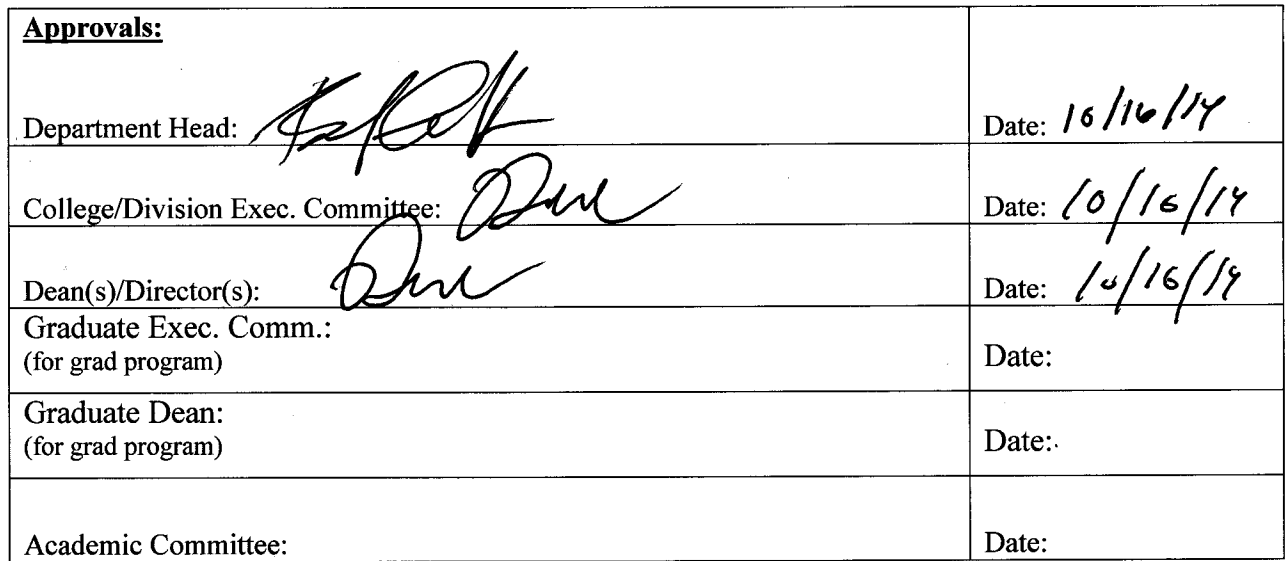 Approvals:
Department Head: Date: 10/16/14
College/Division Exec. Committee: Date: 10/16/14
Dean(s)/Director(s): Date: 10/16/14
Graduate Exec. Comm.:
(for grad program) Date:
Graduate Dean:
(for grad program) Date:
Academic Committee: Date: